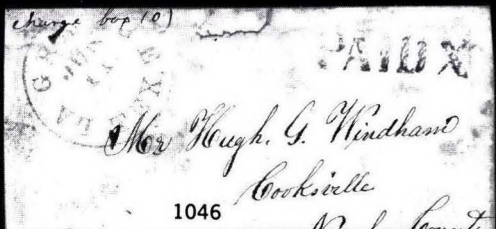 charge box 10)
LA GRANGE TEX.
PAID X
Mr Hugh. G. Windham
Cooksville
1046
County